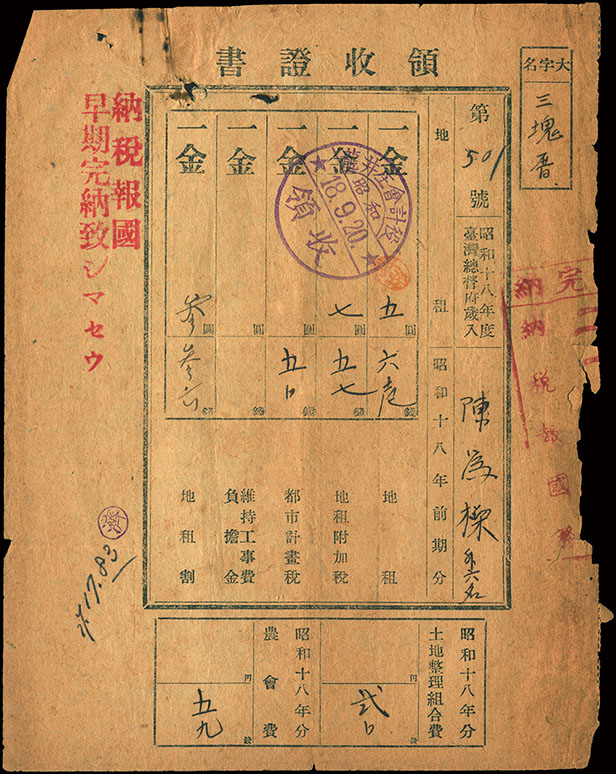 領收證書
大字名
三塊厝
第501號
昭和十八年度
臺灣總督府歲入
陳 樑 外六名
地租
昭和十八年前期分
一金
五圓六 錢
地租
一金
七圓五七錢
地租附加稅
一金
圓五 錢
都市計畫稅
一金
圓 錢
維持工事費
負擔金
一金
參圓參六錢
地租割
會計役
昭和
18.9.20.
領收
昭和十八年分
土地整理組合費
円 錢
昭和十八年分
農會費
円五九錢
納稅報國
早期完納致シマセウ
完納
納稅報國
17.83